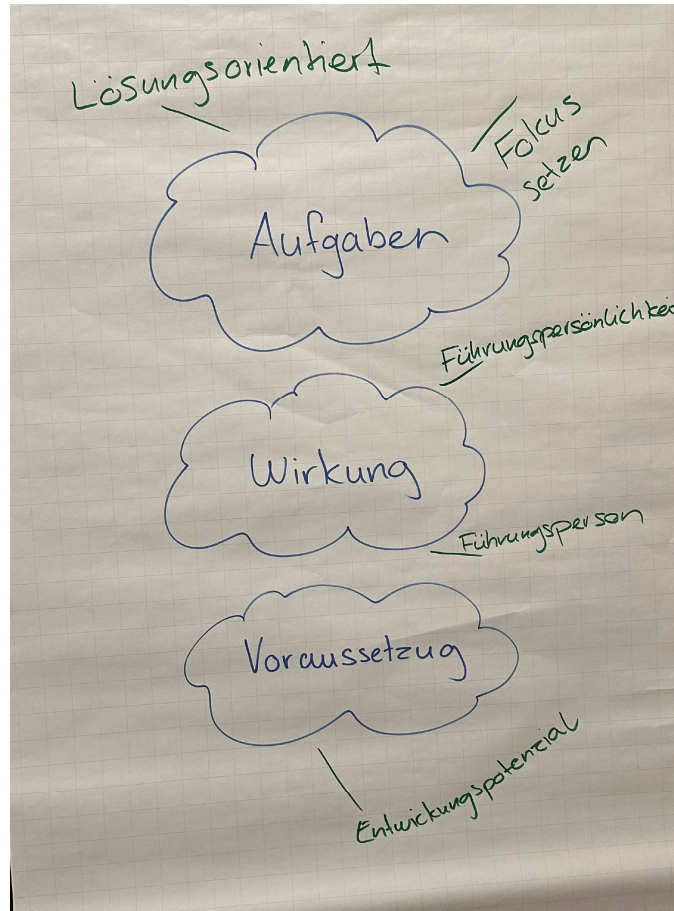 Lösungsorientiert
Fokus
setzen
Aufgaben
Führungspersönlichkei
Wirkung
Führungsperson
Voraussetzug
Entwickungspotenzial